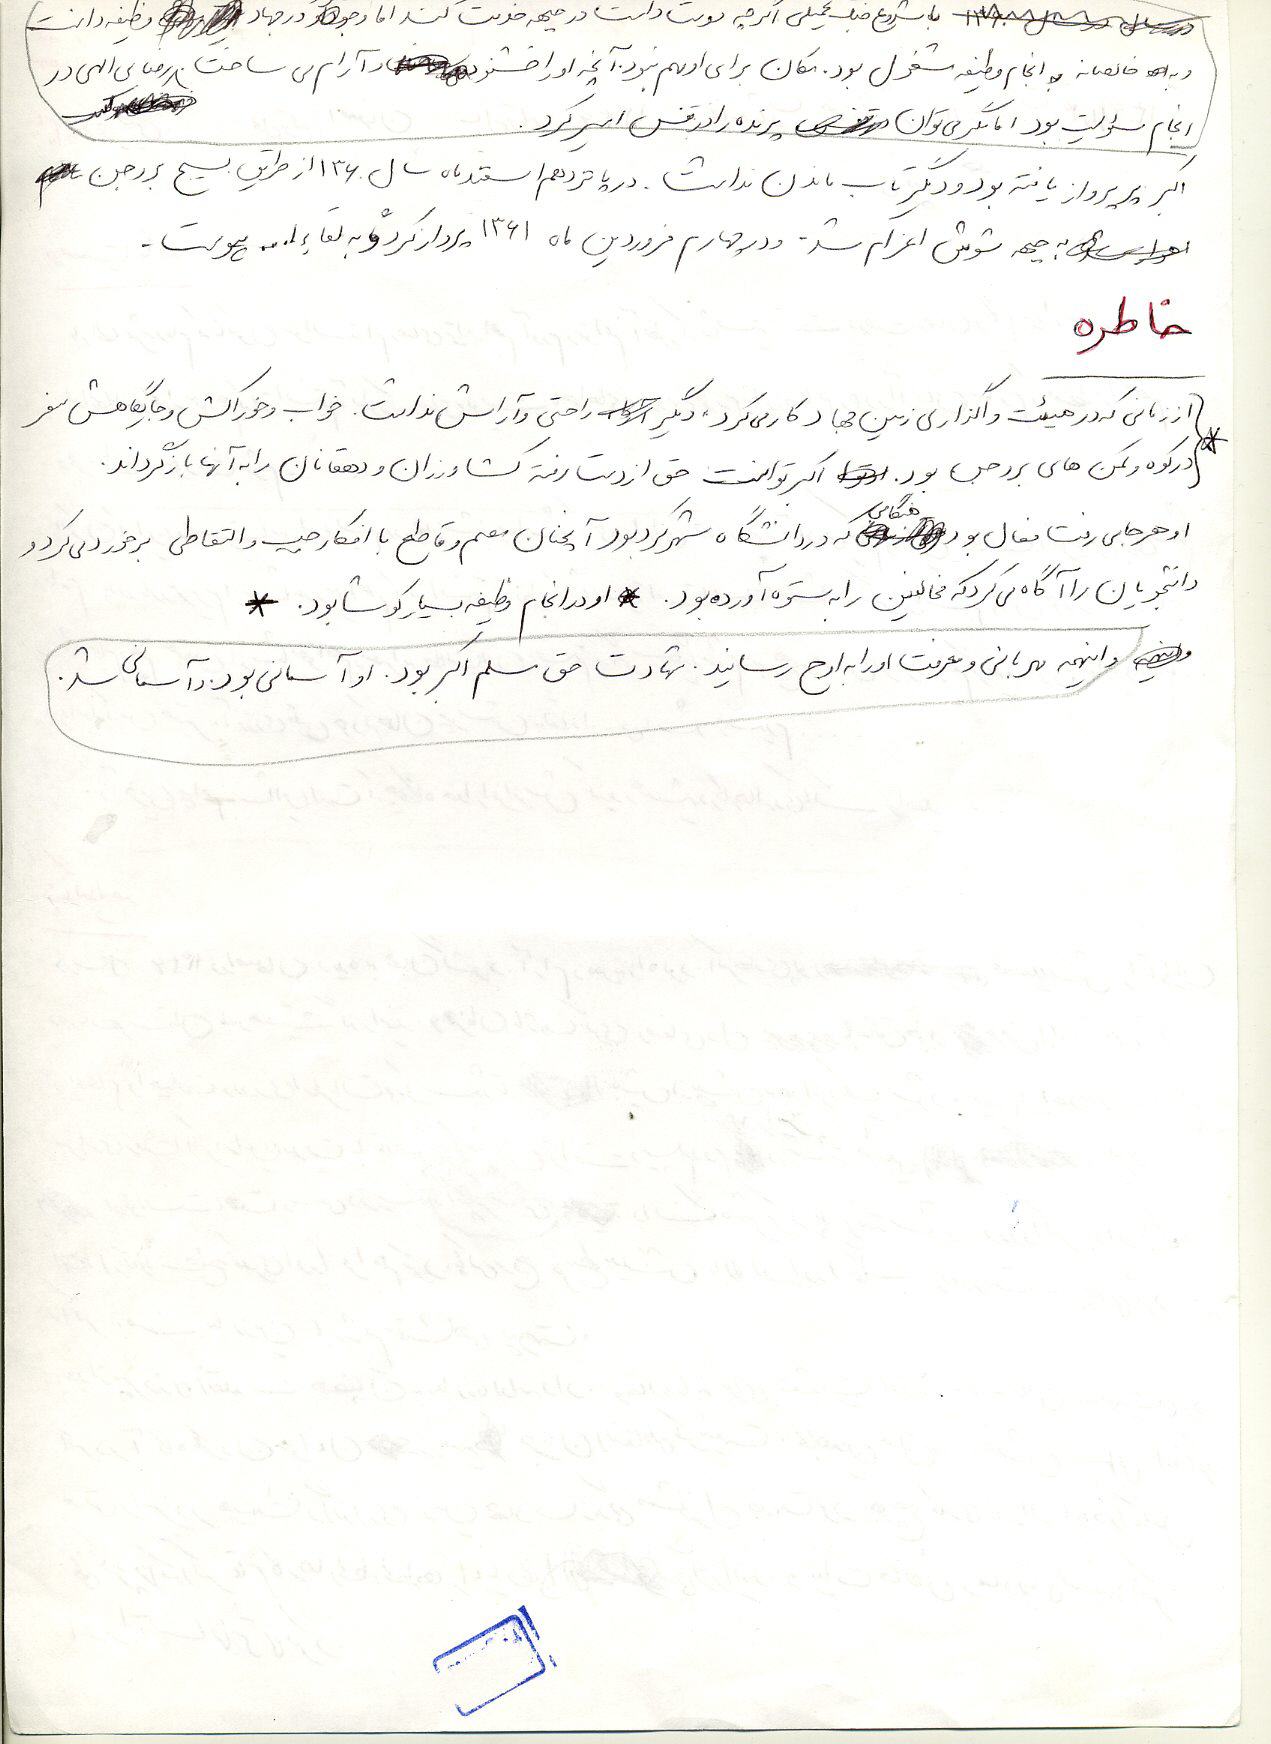 با شروع جنگ تحمیلی اگرچه دوست داشت در جبهه خدمت کند اما وجود در جهاد وظیفه دانست
و خالصانه به انجام وظیفه مشغول بود. مکان برای او مهم نبود. آنچه او را خشنود و آرام می ساخت رضای الهی در
انجام مسئولیت بود اما مگر می توان پرنده را در قفس اسیر کرد.
اکبر پر پرواز یافته بود و دیگر تاب ماندن نداشت. در پانزدهم اسفند ماه سال ۱۳۶۰ از طریق بسیج بروجن
به جبهه شوش اعزام شد. و در چهارم فروردین ماه ۱۳۶۱ پرواز کرد و به لقاء ا... پیوست.
خاطره
از زمانی که در هیئت واگذاری زمین جهاد کار می کرد، دیگر راحتی و آرامش نداشت. خواب و خوراکش و جایگاهش سفر
در کوه و چمن های بروجن بود. اکبر توانست حق از دست رفته کشاورزان و دهقانان را به آنها بازگرداند.
او هر جا می رفت فعال بود هنگامی که در دانشگاه شهرکرد بود آنچنان مصمم و قاطع با افکار چپ و التقاطی برخورد می کرد و
دانشجویان را آگاه می کرد که مخالفین را به ستوه آورده بود. * او در انجام وظیفه بسیار کوشا بود. *
و اینهمه مهربانی و معرفت او را به اوج رسانید. شهادت حق مسلم اکبر بود. او آسمانی بود. و آسمانی شد.